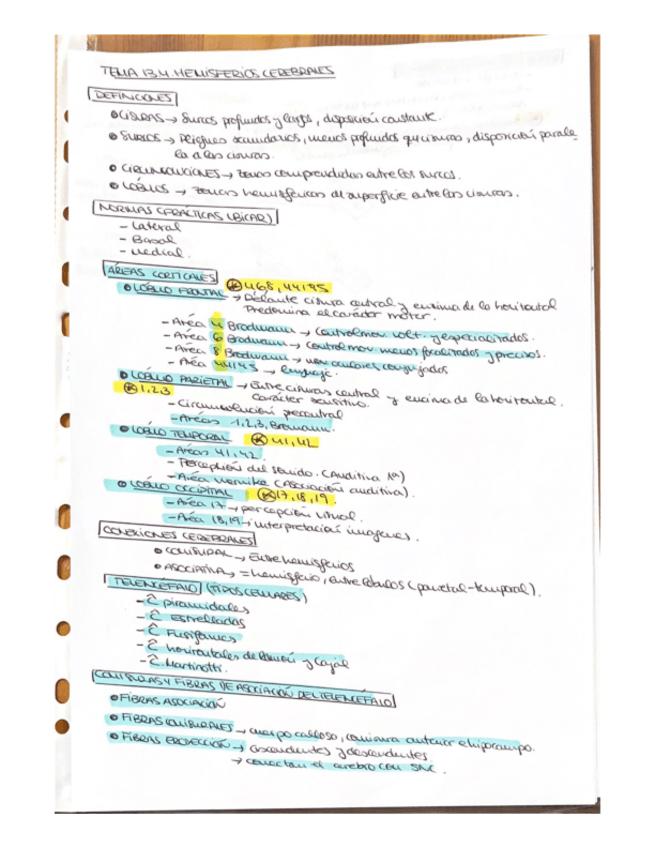 TEMA 13.4. HEMISFERIOS CEREBRALES
DEFINICIONES
• CISURAS → Surcos profundos y largos, disposición constante.
• SURCOS → Pliegues secundarios, menos profundos que cisuras, disposición parale_
la a las cisuras.
• CIRCUNVOLUCIONES → zonas comprendidas entre los surcos.
• LÓBULOS → zonas hemisféricas de superficie entre las cisuras.
NORMAS (PRÁCTICAS UBICAR)
- Lateral
- Basal
- Medial.
ÁREAS CORTICALES
• LÓBULO FRONTAL K 4,6,8,44,45
→ Delante cisura central y encima de la horizontal
Predomina el carácter motor.
- Área 4 Brodmann → Control mov. volt. y especializados.
- Área 6 Brodmann → Control mov menos focalizados y precisos.
- Área 8 Brodmann → mov oculares conjugados
- Área 44,45 → lenguaje.
• LÓBULO PARIETAL → Entre cisuras central y encima de la horizontal.
K 1,2,3 Carácter sensitivo.
- Circunvolución precentral
- Áreas 1,2,3, Bromann.
• LÓBULO TEMPORAL K 41,42
- Áreas 41,42.
- Percepción del sonido. (Auditiva 1ª)
- Área wernike (Asociación auditiva).
• LÓBULO OCCIPITAL K 17,18,19.
- Área 17 → percepción visual.
- Área 18,19 → interpretación imágenes.
CONEXIONES CEREBRALES
• COMISURAL → Entre hemisferios
• ASOCIATIVA → = hemisferio, entre lóbulos (parietal-temporal).
TELENCÉFALO (TIPOS CELULARES)
- C piramidales
- C Estrelladas
- C Fusiformes
- C horizontales de Ramón y Cajal
- C. Martinotti.
COMISURAS Y FIBRAS DE ASOCIACIÓN DEL TELENCÉFALO
• FIBRAS ASOCIACIÓN
• FIBRAS COMISURALES → cuerpo calloso, comisura anterior e hipocampo.
• FIBRAS PROYECCIÓN → ascendentes y descendentes.
→ conectan el cerebro con SNC.